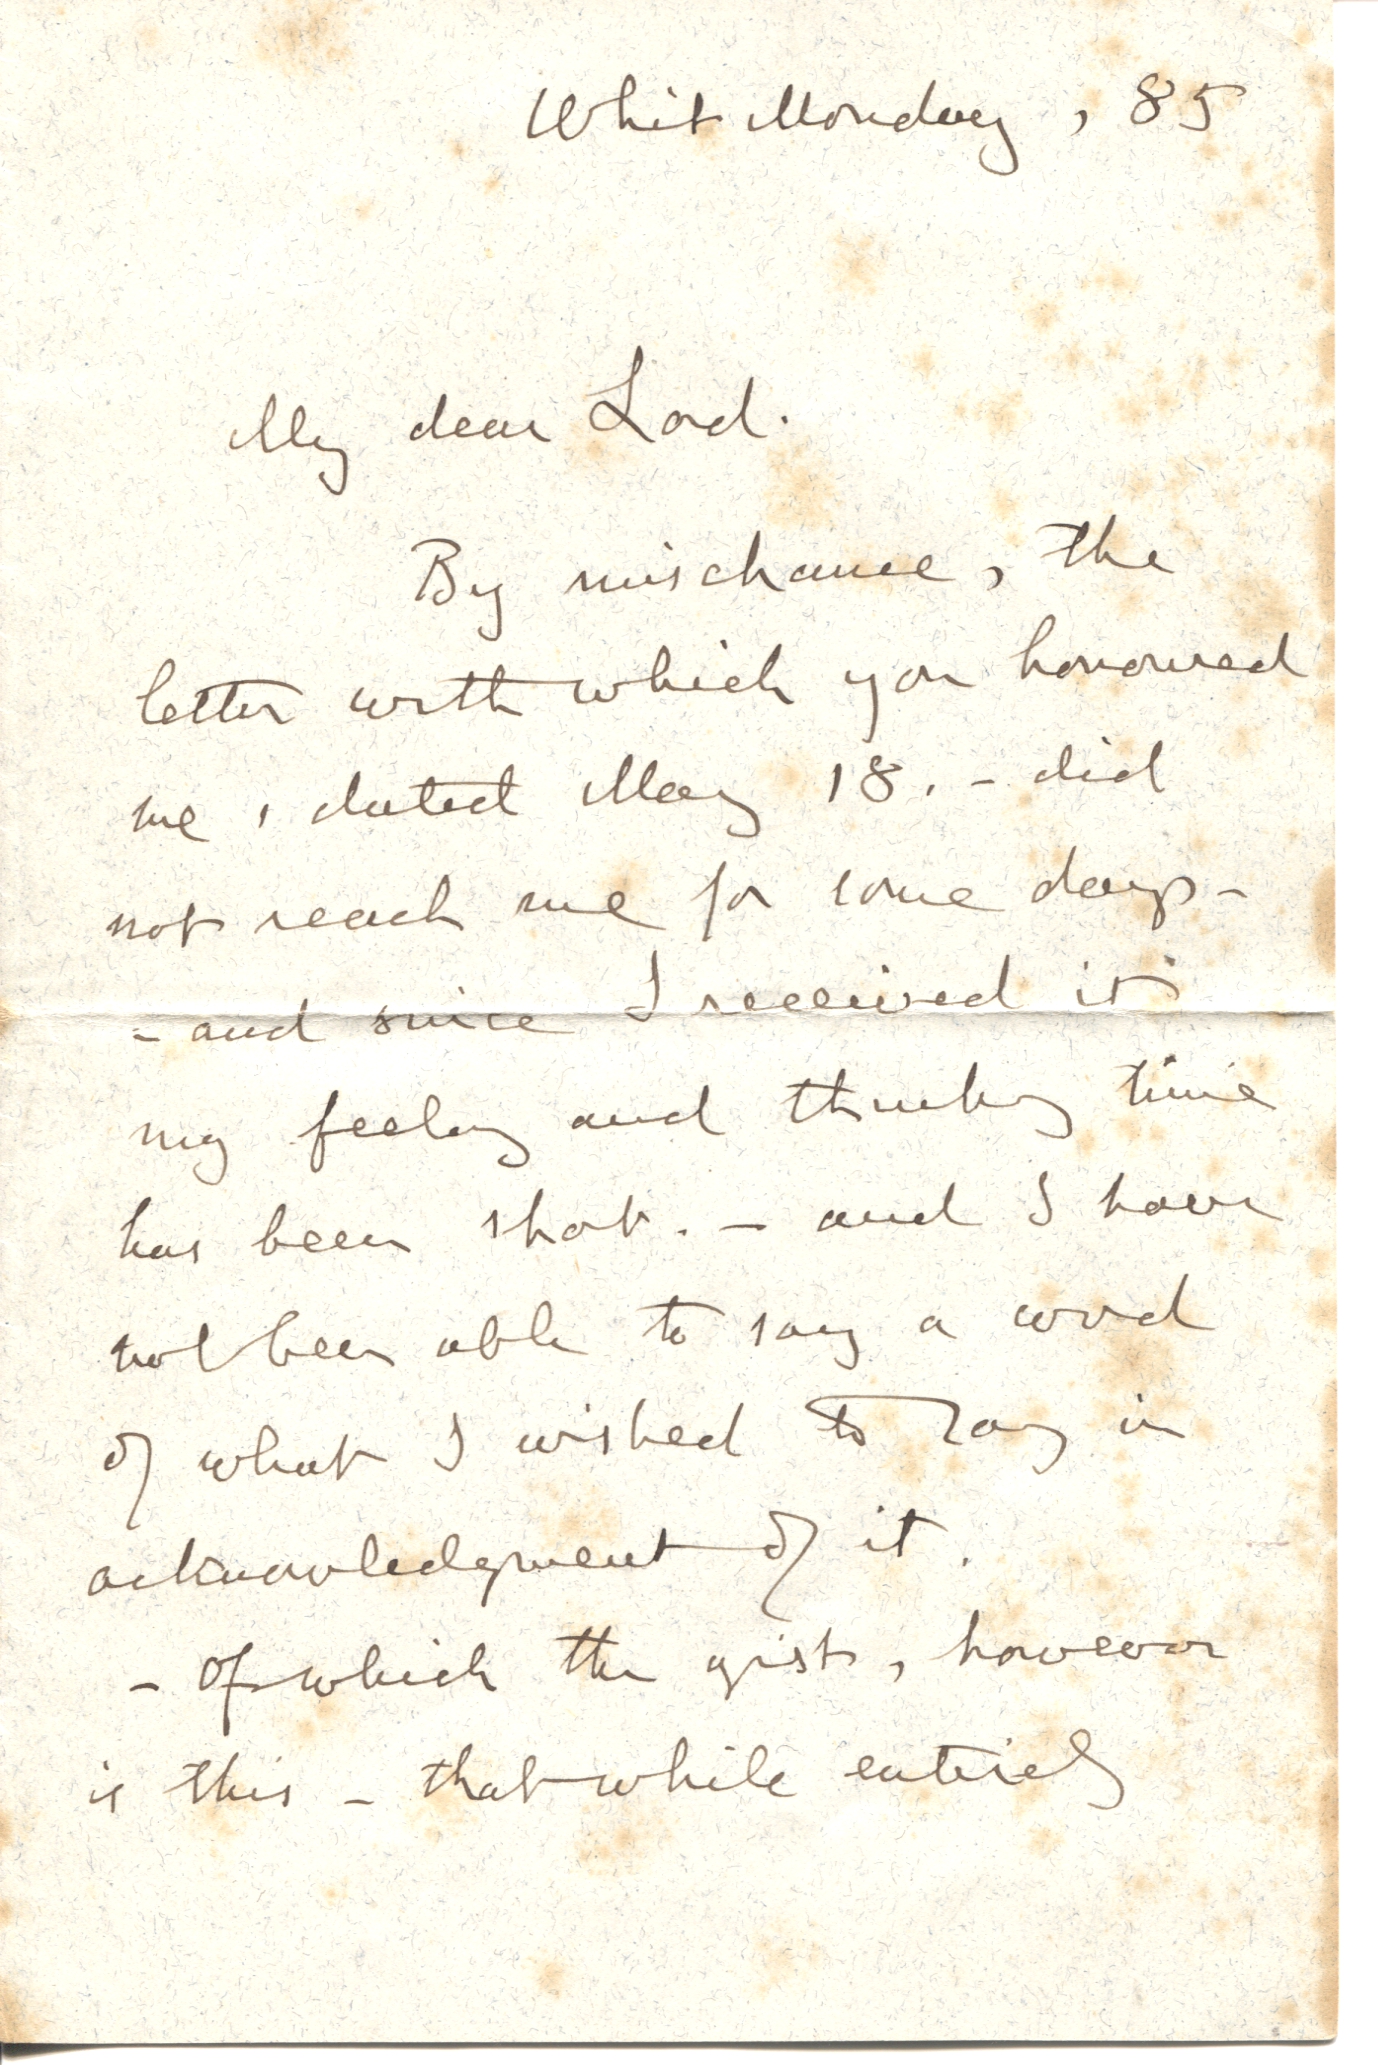 Whit Monday, 85
My dear Lord.
By mischance, the
letter with which you honoured
me, dated May 18. - did
not reach me for some days -
- and since I received it
my feeling and thinking time
has been short. - and I have
not been able to say a word
of what I wished to say in
acknowledgment of it.
- Of which the gist, however
is this - that while entirely